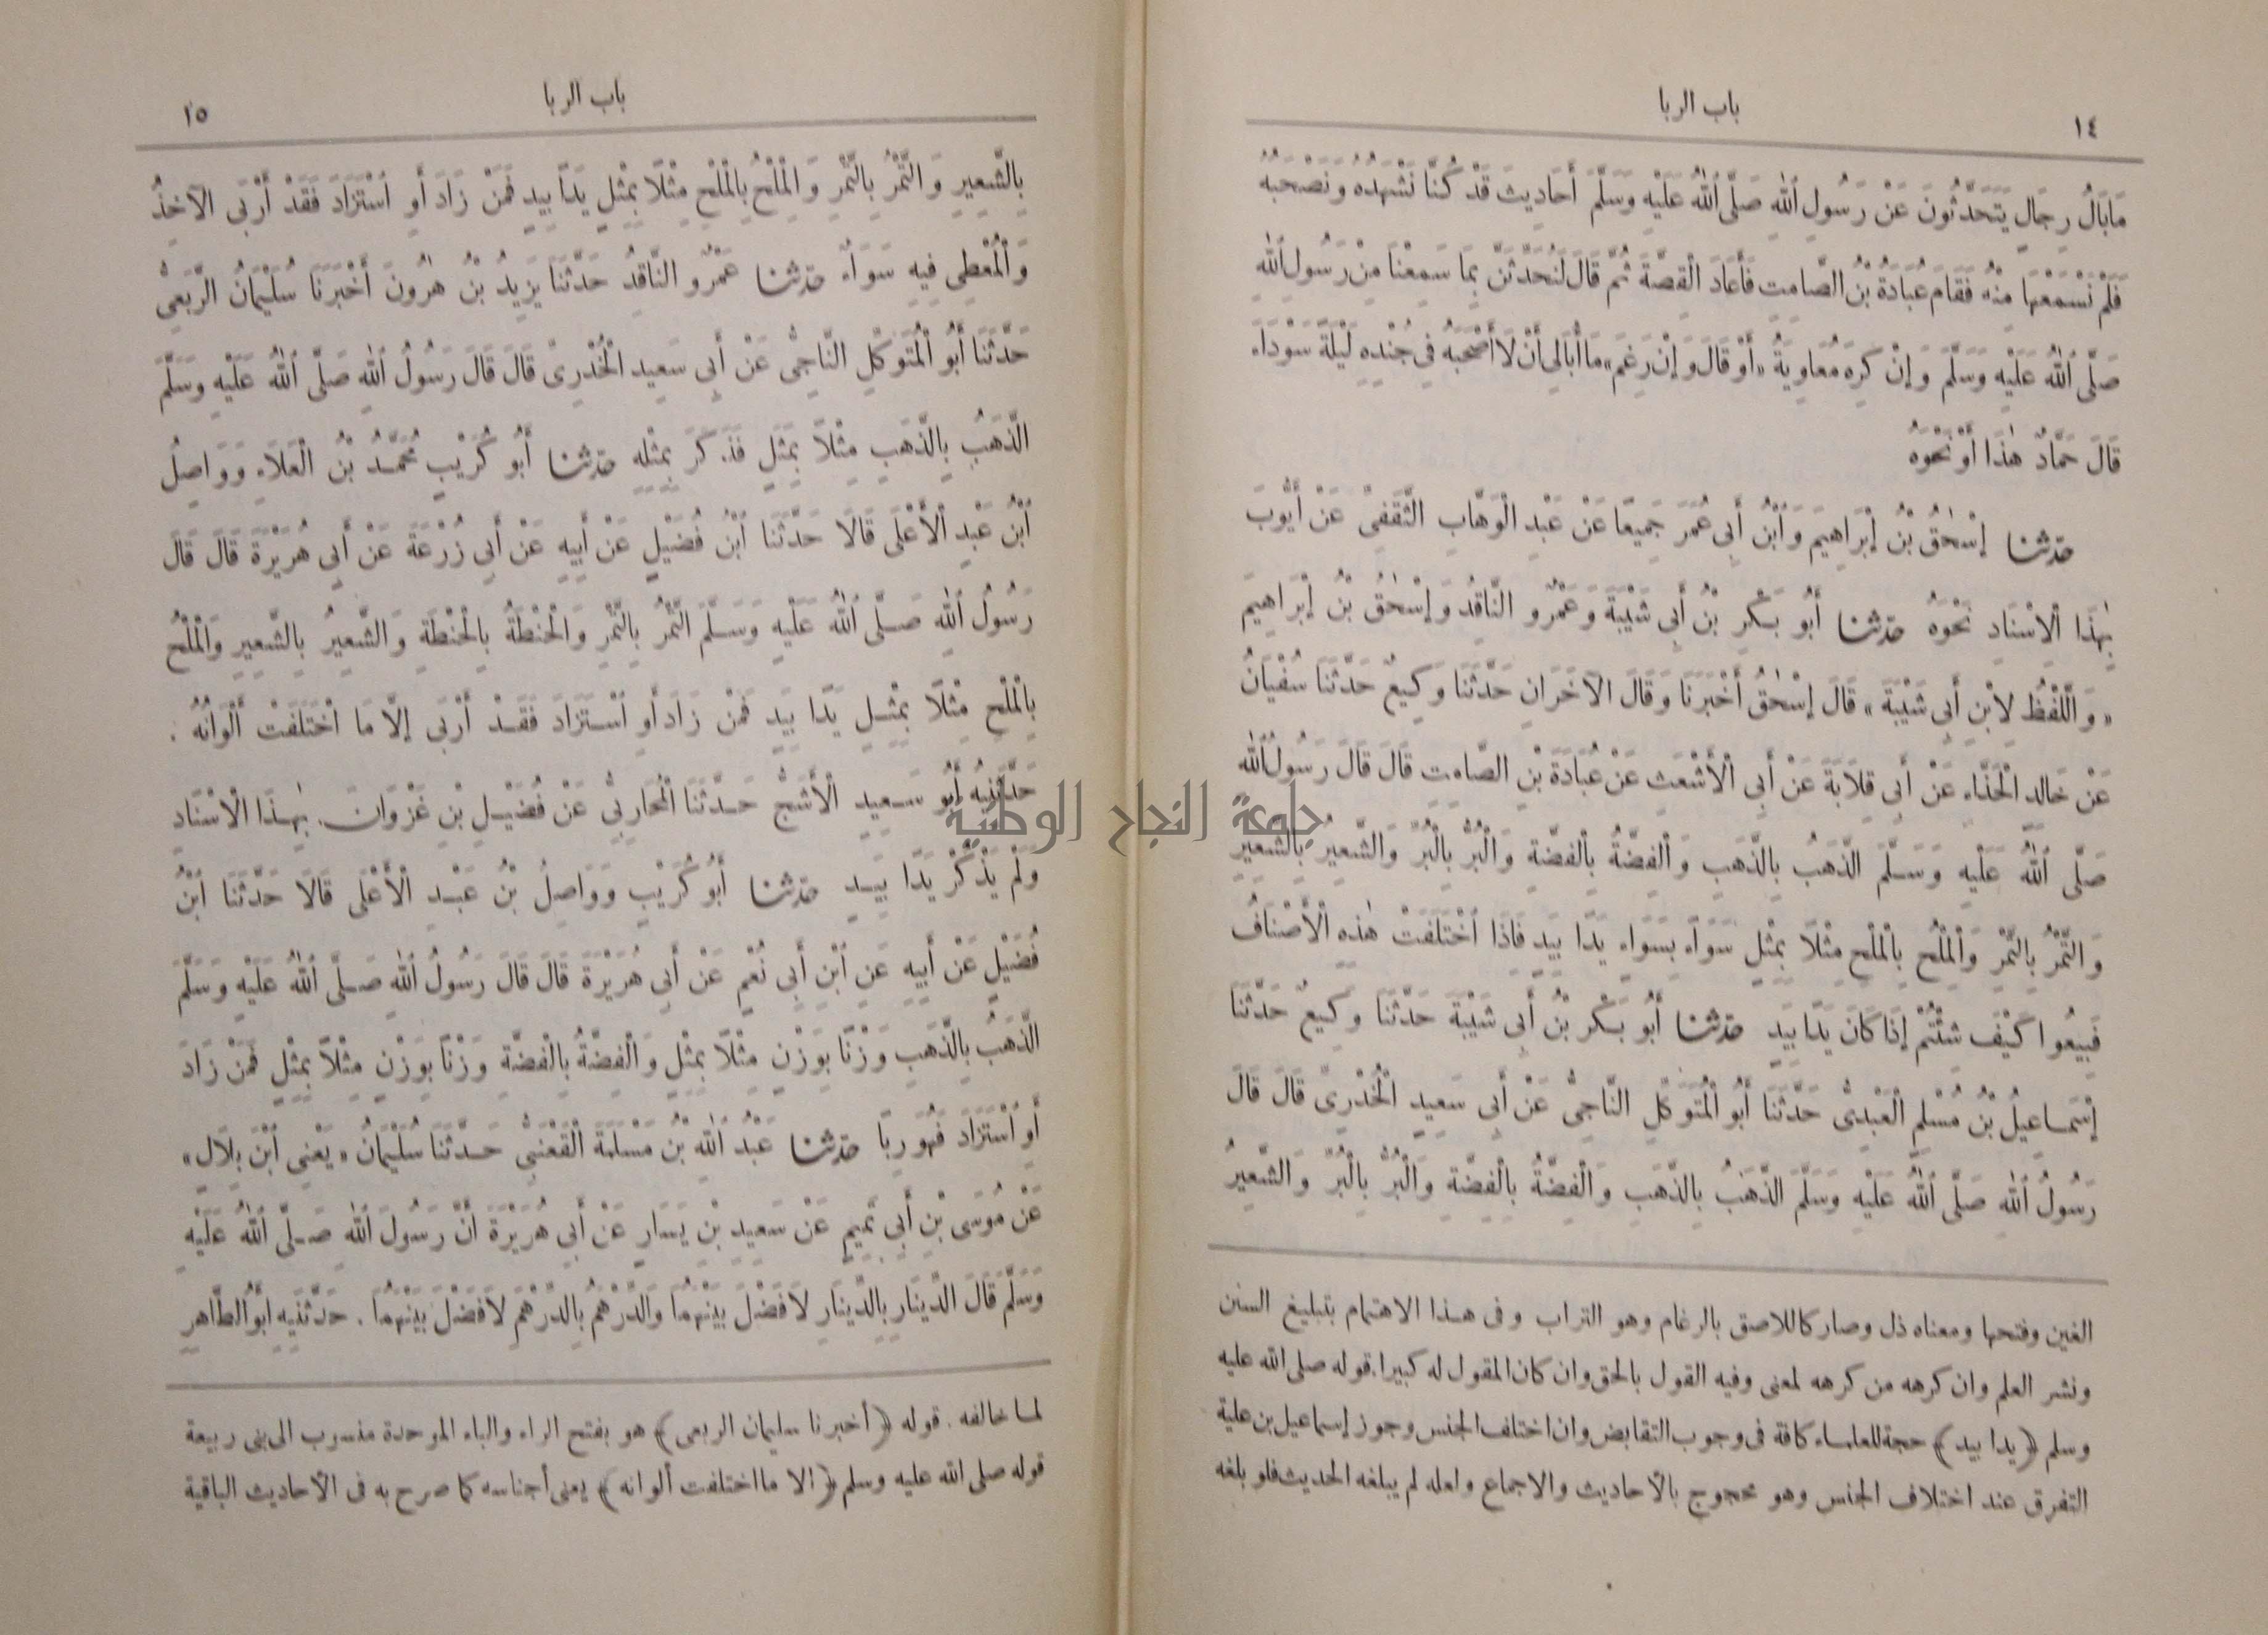 ١٤
باب الربا
مَا بَالُ رِجَالٍ يَتَحَدَّثُونَ عَنْ رَسُولِ اللهِ صَلَّى اللهُ عَلَيْهِ وَسَلَّمَ أَحَادِيثَ قَدْ كُنَّا نَشْهَدُهُ وَنَصْحَبُهُ
فَلَمْ نَسْمَعْهَا مِنْهُ فَقَامَ عُبَادَةُ بْنُ الصَّامِتِ فَأَعَادَ الْقِصَّةَ ثُمَّ قَالَ لَنُحَدِّثَنَّ بِمَا سَمِعْنَا مِنْ رَسُولِ اللهِ
صَلَّى اللهُ عَلَيْهِ وَسَلَّمَ وَإِنْ كَرِهَ مُعَاوِيَةُ «أَوْ قَالَ وَإِنْ رَغِمَ» مَا أُبَالِي أَنْ لَا أَصْحَبَهُ فِي جُنْدِهِ لَيْلَةً سَوْدَاءَ
قَالَ حَمَّادٌ هٰذَا أَوْ نَحْوَهُ
حدثنا إِسْحٰقُ بْنُ إِبْرَاهِيمَ وَابْنُ أَبِي عُمَرَ جَمِيعًا عَنْ عَبْدِ الْوَهَّابِ الثَّقَفِيِّ عَنْ أَيُّوبَ
بِهٰذَا الْإِسْنَادِ نَحْوَهُ حدثنا أَبُو بَكْرِ بْنُ أَبِي شَيْبَةَ وَعَمْرٌو النَّاقِدُ وَإِسْحٰقُ بْنُ إِبْرَاهِيمَ
«وَاللَّفْظُ لِابْنِ أَبِي شَيْبَةَ» قَالَ إِسْحٰقُ أَخْبَرَنَا وَقَالَ الْآخَرَانِ حَدَّثَنَا وَكِيعٌ حَدَّثَنَا سُفْيَانُ
عَنْ خَالِدٍ الْحَذَّاءِ عَنْ أَبِي قِلَابَةَ عَنْ أَبِي الْأَشْعَثِ عَنْ عُبَادَةَ بْنِ الصَّامِتِ قَالَ قَالَ رَسُولُ اللهِ
صَلَّى اللهُ عَلَيْهِ وَسَلَّمَ الذَّهَبُ بِالذَّهَبِ وَالْفِضَّةُ بِالْفِضَّةِ وَالْبُرُّ بِالْبُرِّ وَالشَّعِيرُ بِالشَّعِيرِ
وَالتَّمْرُ بِالتَّمْرِ وَالْمِلْحُ بِالْمِلْحِ مِثْلًا بِمِثْلٍ سَوَاءً بِسَوَاءٍ يَدًا بِيَدٍ فَإِذَا اخْتَلَفَتْ هٰذِهِ الْأَصْنَافُ
فَبِيعُوا كَيْفَ شِئْتُمْ إِذَا كَانَ يَدًا بِيَدٍ حدثنا أَبُو بَكْرِ بْنُ أَبِي شَيْبَةَ حَدَّثَنَا وَكِيعٌ حَدَّثَنَا
إِسْمَاعِيلُ بْنُ مُسْلِمٍ الْعَبْدِيُّ حَدَّثَنَا أَبُو الْمُتَوَكِّلِ النَّاجِيُّ عَنْ أَبِي سَعِيدٍ الْخُدْرِيِّ قَالَ قَالَ
رَسُولُ اللهِ صَلَّى اللهُ عَلَيْهِ وَسَلَّمَ الذَّهَبُ بِالذَّهَبِ وَالْفِضَّةُ بِالْفِضَّةِ وَالْبُرُّ بِالْبُرِّ وَالشَّعِيرُ
الغين وفتحها ومعناه ذل وصار كاللاصق بالرغام وهو التراب وفى هذا الاهتمام بتبليغ السنن
ونشر العلم وان كرهه من كرهه لمعنى وفيه القول بالحق وان كان المقول له كبيرا. قوله صلى الله عليه
وسلم ﴿يدا بيد﴾ حجة للعلماء كافة فى وجوب التقابض وان اختلف الجنس وجوز إسماعيل بن علية
التفرق عند اختلاف الجنس وهو محجوج بالأحاديث والاجماع ولعله لم يبلغه الحديث فلو بلغه
١٥
باب الربا
بِالشَّعِيرِ وَالتَّمْرُ بِالتَّمْرِ وَالْمِلْحُ بِالْمِلْحِ مِثْلًا بِمِثْلٍ يَدًا بِيَدٍ فَمَنْ زَادَ أَوِ اسْتَزَادَ فَقَدْ أَرْبَى الْآخِذُ
وَالْمُعْطِي فِيهِ سَوَاءٌ حدثنا عَمْرٌو النَّاقِدُ حَدَّثَنَا يَزِيدُ بْنُ هٰرُونَ أَخْبَرَنَا سُلَيْمَانُ الرَّبَعِيُّ
حَدَّثَنَا أَبُو الْمُتَوَكِّلِ النَّاجِيُّ عَنْ أَبِي سَعِيدٍ الْخُدْرِيِّ قَالَ قَالَ رَسُولُ اللهِ صَلَّى اللهُ عَلَيْهِ وَسَلَّمَ
الذَّهَبُ بِالذَّهَبِ مِثْلًا بِمِثْلٍ فَذَكَرَ بِمِثْلِهِ حدثنا أَبُو كُرَيْبٍ مُحَمَّدُ بْنُ الْعَلَاءِ وَوَاصِلُ
ابْنُ عَبْدِ الْأَعْلَى قَالَا حَدَّثَنَا ابْنُ فُضَيْلٍ عَنْ أَبِيهِ عَنْ أَبِي زُرْعَةَ عَنْ أَبِي هُرَيْرَةَ قَالَ قَالَ
رَسُولُ اللهِ صَلَّى اللهُ عَلَيْهِ وَسَلَّمَ التَّمْرُ بِالتَّمْرِ وَالْحِنْطَةُ بِالْحِنْطَةِ وَالشَّعِيرُ بِالشَّعِيرِ وَالْمِلْحُ
بِالْمِلْحِ مِثْلًا بِمِثْلٍ يَدًا بِيَدٍ فَمَنْ زَادَ أَوِ اسْتَزَادَ فَقَدْ أَرْبَى إِلَّا مَا اخْتَلَفَتْ أَلْوَانُهُ .
حَدَّثَنِيهِ أَبُو سَعِيدٍ الْأَشَجُّ حَدَّثَنَا الْمُحَارِبِيُّ عَنْ فُضَيْلِ بْنِ غَزْوَانَ بِهٰذَا الْإِسْنَادِ
وَلَمْ يَذْكُرْ يَدًا بِيَدٍ حدثنا أَبُو كُرَيْبٍ وَوَاصِلُ بْنُ عَبْدِ الْأَعْلَى قَالَا حَدَّثَنَا ابْنُ
فُضَيْلٍ عَنْ أَبِيهِ عَنِ ابْنِ أَبِي نُعْمٍ عَنْ أَبِي هُرَيْرَةَ قَالَ قَالَ رَسُولُ اللهِ صَلَّى اللهُ عَلَيْهِ وَسَلَّمَ
الذَّهَبُ بِالذَّهَبِ وَزْنًا بِوَزْنٍ مِثْلًا بِمِثْلٍ وَالْفِضَّةُ بِالْفِضَّةِ وَزْنًا بِوَزْنٍ مِثْلًا بِمِثْلٍ فَمَنْ زَادَ
أَوِ اسْتَزَادَ فَهُوَ رِبًا حدثنا عَبْدُ اللهِ بْنُ مَسْلَمَةَ الْقَعْنَبِيُّ حَدَّثَنَا سُلَيْمَانُ «يَعْنِي ابْنَ بِلَالٍ»
عَنْ مُوسَى بْنِ أَبِي تَمِيمٍ عَنْ سَعِيدِ بْنِ يَسَارٍ عَنْ أَبِي هُرَيْرَةَ أَنَّ رَسُولَ اللهِ صَلَّى اللهُ عَلَيْهِ
وَسَلَّمَ قَالَ الدِّينَارُ بِالدِّينَارِ لَا فَضْلَ بَيْنَهُمَا وَالدِّرْهَمُ بِالدِّرْهَمِ لَا فَضْلَ بَيْنَهُمَا . حَدَّثَنِيهِ أَبُو الطَّاهِرِ
لما خالفه . قوله ﴿أخبرنا سليمان الربعى﴾ هو بفتح الراء والباء الموحدة منسوب الى بنى ربيعة
قوله صلى الله عليه وسلم ﴿الا ما اختلفت ألوانه﴾ يعنى أجناسه كما صرح به فى الأحاديث الباقية
جامعة النجاح الوطنية